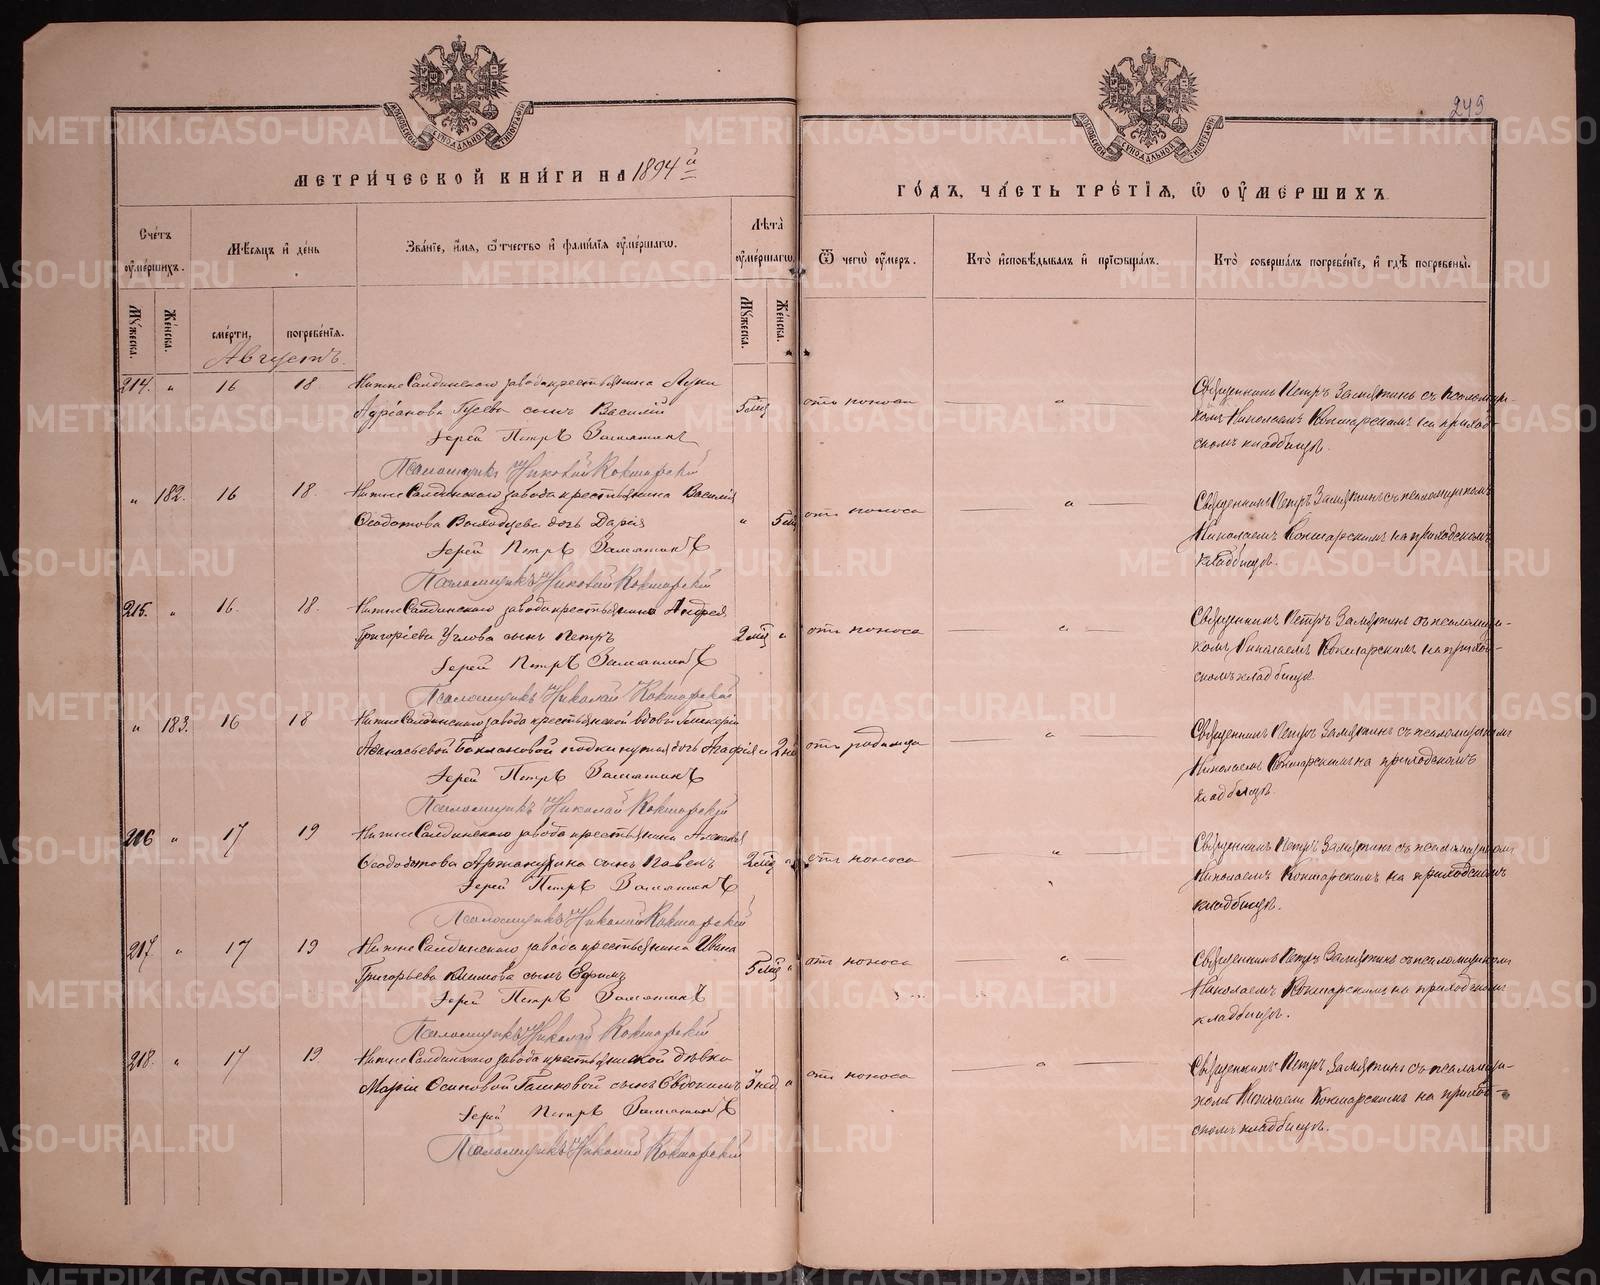 МЕТРИ́ЧЕСКОЙ КНИ́ГИ НА 1894й
ГО́ДЪ, ЧА́СТЬ ТРЕ́ТІѦ, Ѡ ОУМЕ́РШИХЪ.
249
МОСКОВСКОЙ СѴНОДАЛЬНОЙ ТИПОГРАФІИ
МОСКОВСКОЙ СѴНОДАЛЬНОЙ ТИПОГРАФІИ
Сче́тъ оуме́ршихъ.
Мѣ́сяцъ и де́нь
Зва́ніе, и́мя, ѻ́тчество и фами́лія оуме́ршагѡ.
Лѣта̀ оуме́ршагѡ.
Ѿ чегѡ̀ оу́меръ.
Кто̀ и҆сповѣ́дывалъ и҆ прїѡбща́лъ.
Кто̀ соверша́лъ погребе́ніе, и҆ гдѣ̀ погребены̀.
Му́жеска.
Же́нска.
сме́рти,
погребе́нія.
Му́жеска.
Же́нска.
Августъ.
214. " 16 18 НижнеСалдинскаго завода крестьянина Луки
Адріанова Гусева сынъ Василій 5 мѣс отъ поноса "
Іерей Петръ Замятинъ
Псаломщикъ Николай Кокшарскій
Священникъ Петръ Замятинъ съ псаломщи-
комъ Николаемъ Кокшарскимъ на приход-
скомъ кладбищѣ.
" 182. 16 18. НижнеСалдинскаго завода крестьянина Василія
Ѳеодотова дочь Дарія " 5 отъ поноса "
Іерей Петръ Замятинъ
Псаломщикъ Николай Кокшарскій
Священникъ Петръ Замятинъ съ псаломщикомъ
Николаемъ Кокшарскимъ на приходскомъ
кладбищѣ.
215. " 16. 18. НижнеСалдинскаго завода крестьянина Андрея
Григоріева Углова сынъ Петръ 2 мѣс " отъ поноса "
Іерей Петръ Замятинъ
Псаломщикъ Николай Кокшарскій
Священникъ Петръ Замятинъ съ псаломщи-
комъ Николаемъ Кокшарскимъ на приход-
скомъ кладбищѣ.
" 183. 16 18 НижнеСалдинскаго завода крестьянской вдовы Гликеріи
Аѳанасьевой Баклановой дочь Агафія " 2 отъ родимца "
Іерей Петръ Замятинъ
Псаломщикъ Николай Кокшарскій
Священникъ Петръ Замятинъ съ псаломщикомъ
Николаемъ Кокшарскимъ на приходскомъ
кладбищѣ.
216 " 17 19 НижнеСалдинскаго завода крестьянина
сынъ Павелъ 2 мѣс " отъ поноса "
Іерей Петръ Замятинъ
Псаломщикъ Николай Кокшарскій
Священникъ Петръ Замятинъ съ псаломщикомъ
Николаемъ Кокшарскимъ на приходскомъ
кладбищѣ.
217. " 17 19 НижнеСалдинскаго завода крестьянина Ивана
Григорьева Климова сынъ Ефимъ 5 мѣс " отъ поноса "
Іерей Петръ Замятинъ
Псаломщикъ Николай Кокшарскій
Священникъ Петръ Замятинъ съ псаломщикомъ
Николаемъ Кокшарскимъ на приходскомъ
кладбищѣ.
218. " 17 19 НижнеСалдинскаго завода крестьянской дѣвки
Маріи Осиповой Гашковой сынъ Евдокимъ 3 нед " отъ поноса "
Іерей Петръ Замятинъ
Псаломщикъ Николай Кокшарскій
Священникъ Петръ Замятинъ съ псаломщи-
комъ Николаемъ Кокшарскимъ на приход-
скомъ кладбищѣ.
METRIKI.GASO-URAL.RU